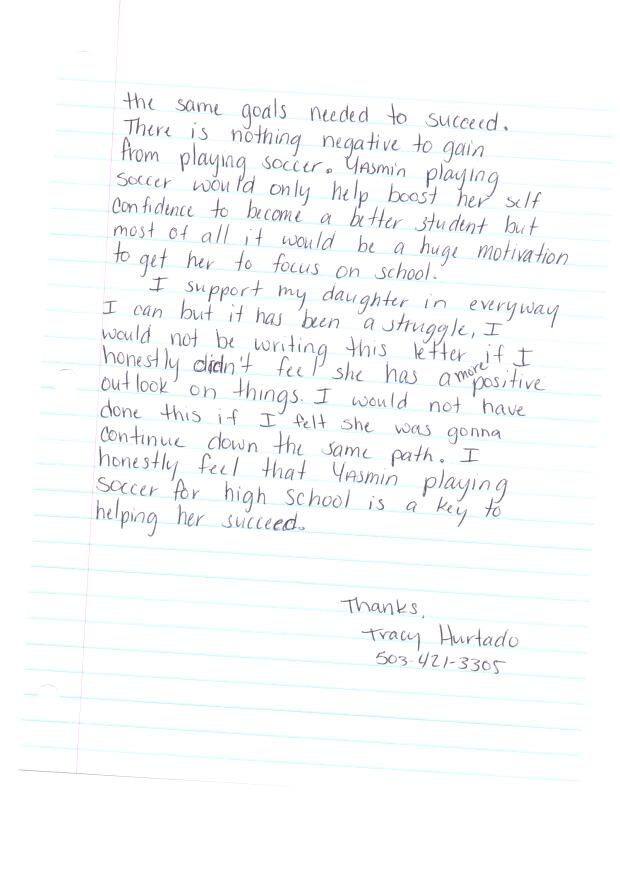 the same goals needed to succeed.
There is nothing negative to gain
from playing soccer. Yasmin playing
soccer would only help boost her self
confidence to become a better student but
most of all it would be a huge motivation
to get her to focus on school.
I support my daughter in everyway
I can but it has been a struggle, I
would not be writing this letter if I
honestly didn't feel she has a more positive
outlook on things. I would not have
done this if I felt she was gonna
continue down the same path. I
honestly feel that Yasmin playing
soccer for high school is a key to
helping her succeed.
Thanks,
Tracy Hurtado
503-421-3305